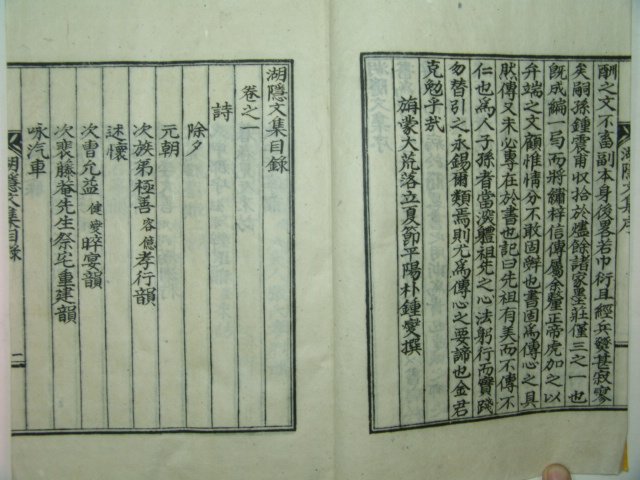 酬之文不畜副本身後畧若巾衍且經兵燹甚寂寥
矣嗣孫鍾震甫收拾於爐餘諸家墨庄僅三之一也
旣成編局而將繡梓信傳屬余釐正帝虎加之以
弁端之文顧惟情分不敢固辤也書固爲傳心之具
然傳又未必專在於書也記曰先祖有美而不傳不
仁也爲人子孫者當深軆祖先之心法躬行而實踐
勿替引之永錫爾類焉則尤爲傳心之要諦也金君
克勉乎哉
旃蒙大荒落立夏節平陽朴鍾燮撰
湖隱文集序
湖隱文集目錄
卷之一
詩
除夕
元朝
次族弟極善容億孝行韻
述懷
次曺允益健燮晬宴韻
次裵藤菴先生祭宅重建韻
咏汽車
湖隱文集目錄
一